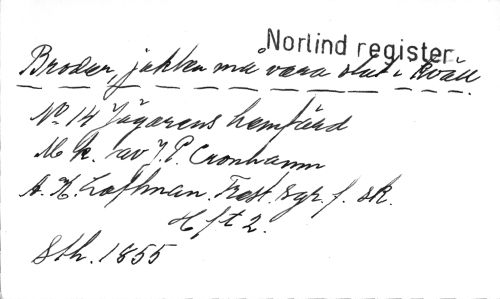 Norlind register
Broder, jakten må vara slut i kväll.
No 14 Jägarens hemfärd
M k. av J. P. Cronhamm
A. H. Lofhman. Fest. sgr f. sk.
Hft 2.
Sth. 1855